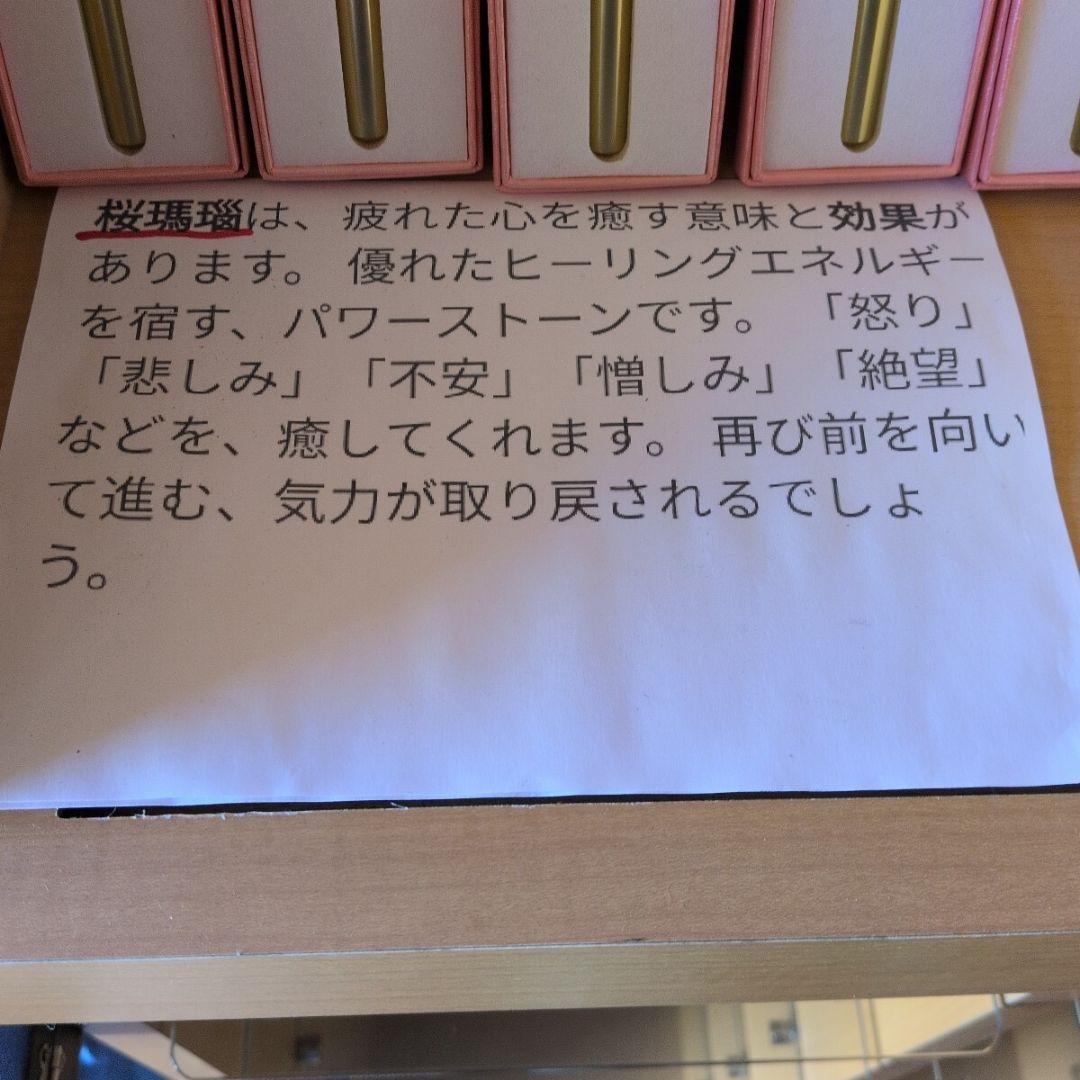 桜瑪瑙は、疲れた心を癒す意味と効果が
あります。 優れたヒーリングエネルギー
を宿す、パワーストーンです。 「怒り」
「悲しみ」「不安」「憎しみ」「絶望」
などを、癒してくれます。 再び前を向い
て進む、気力が取り戻されるでしょ
う。